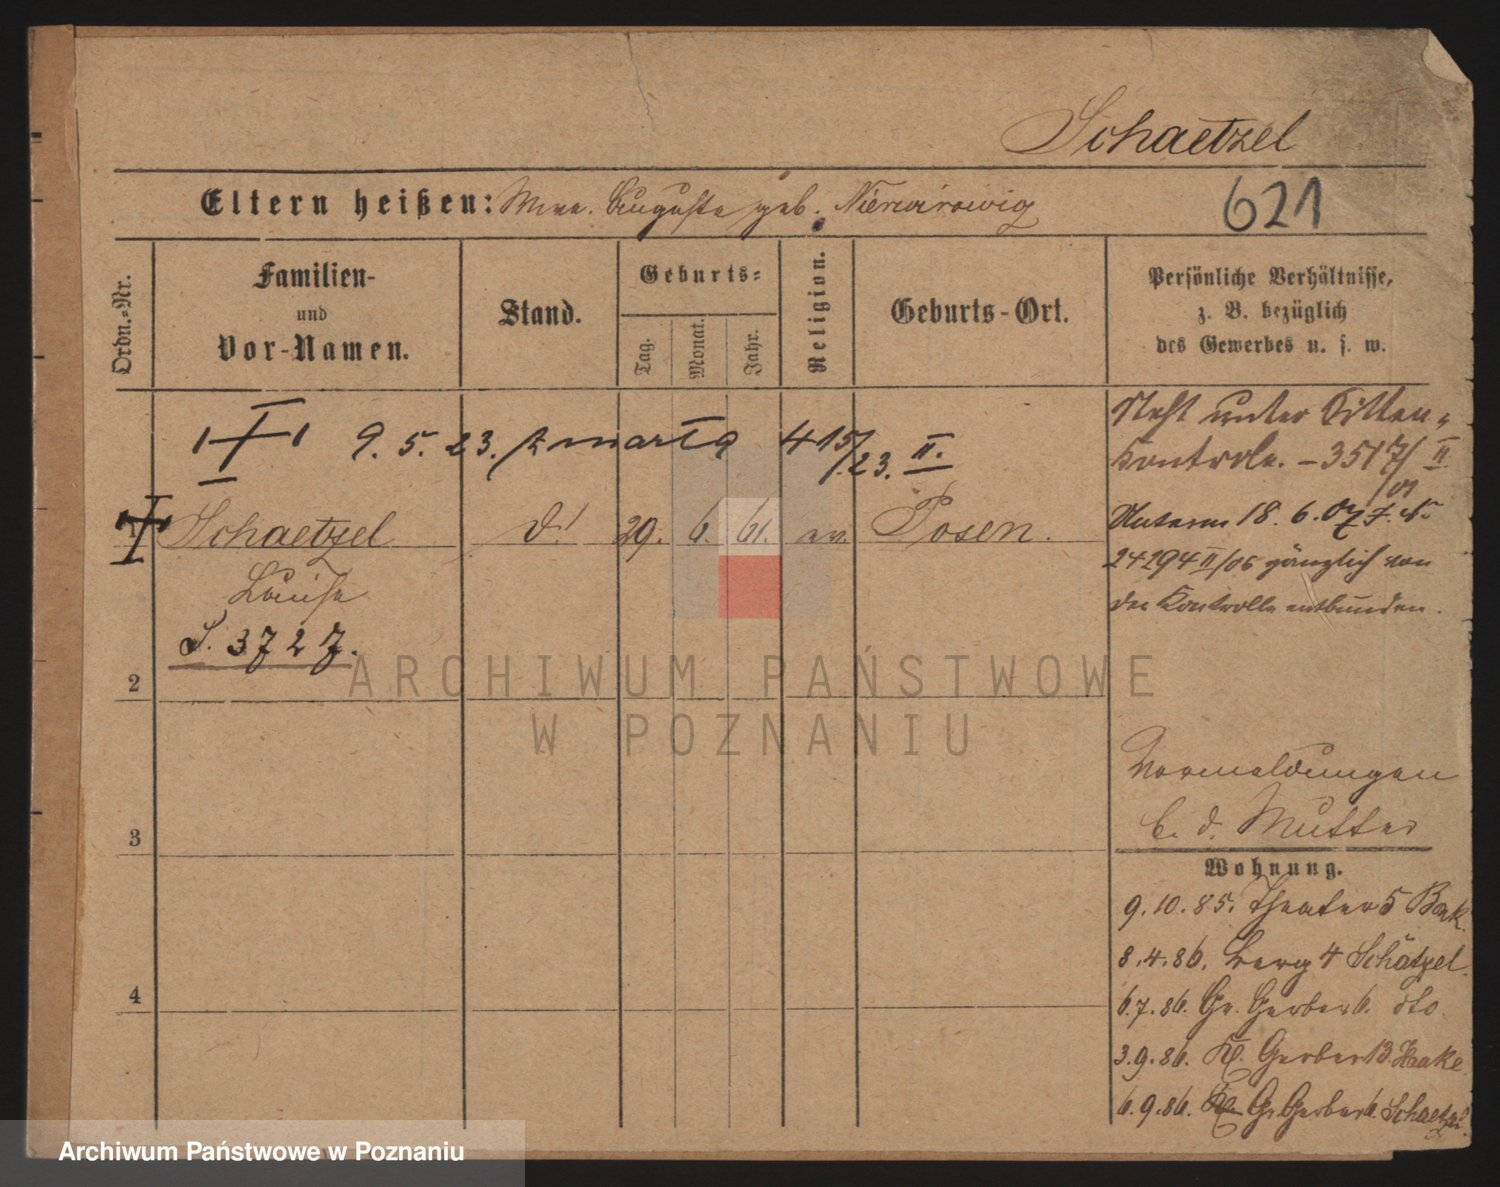 Schaetzel
Eltern heißen: Wwe. Auguste geb. Nierwirowig
621
Ordn.=Nr.
Familien-
und
Vor-Namen.
Stand.
Geburts=
Tag.
Monat.
Jahr.
Religion.
Geburts-Ort.
Persönliche Verhältnisse,
z. B. bezüglich
des Gewerbes u. s. w.
9. 5. 23. 415/23. II.
Steht unter Sitten-
Kontrole. – 3517/II
/01
Schaetzel d. 29. 6. 61. ev. Posen.
Louise
S. 3727.
Unterm 18. 6. 07
24294 II/06 gänzlich von
der Kontrolle entbunden.
2
3
4
Vormeldungen
b. d. Mutter
Wohnung.
9.10.85. Theater 5 Bak.
8.4.86. Berg 4 Schätzel.
6.7.86. Gr. Gerber 6. dto.
3.9.86. Kl. Gerber 13. Haake
6.9.86. Kl. Gr Gerber 6. Schaetzel.
ARCHIWUM PAŃSTWOWE
W POZNANIU
Archiwum Państwowe w Poznaniu